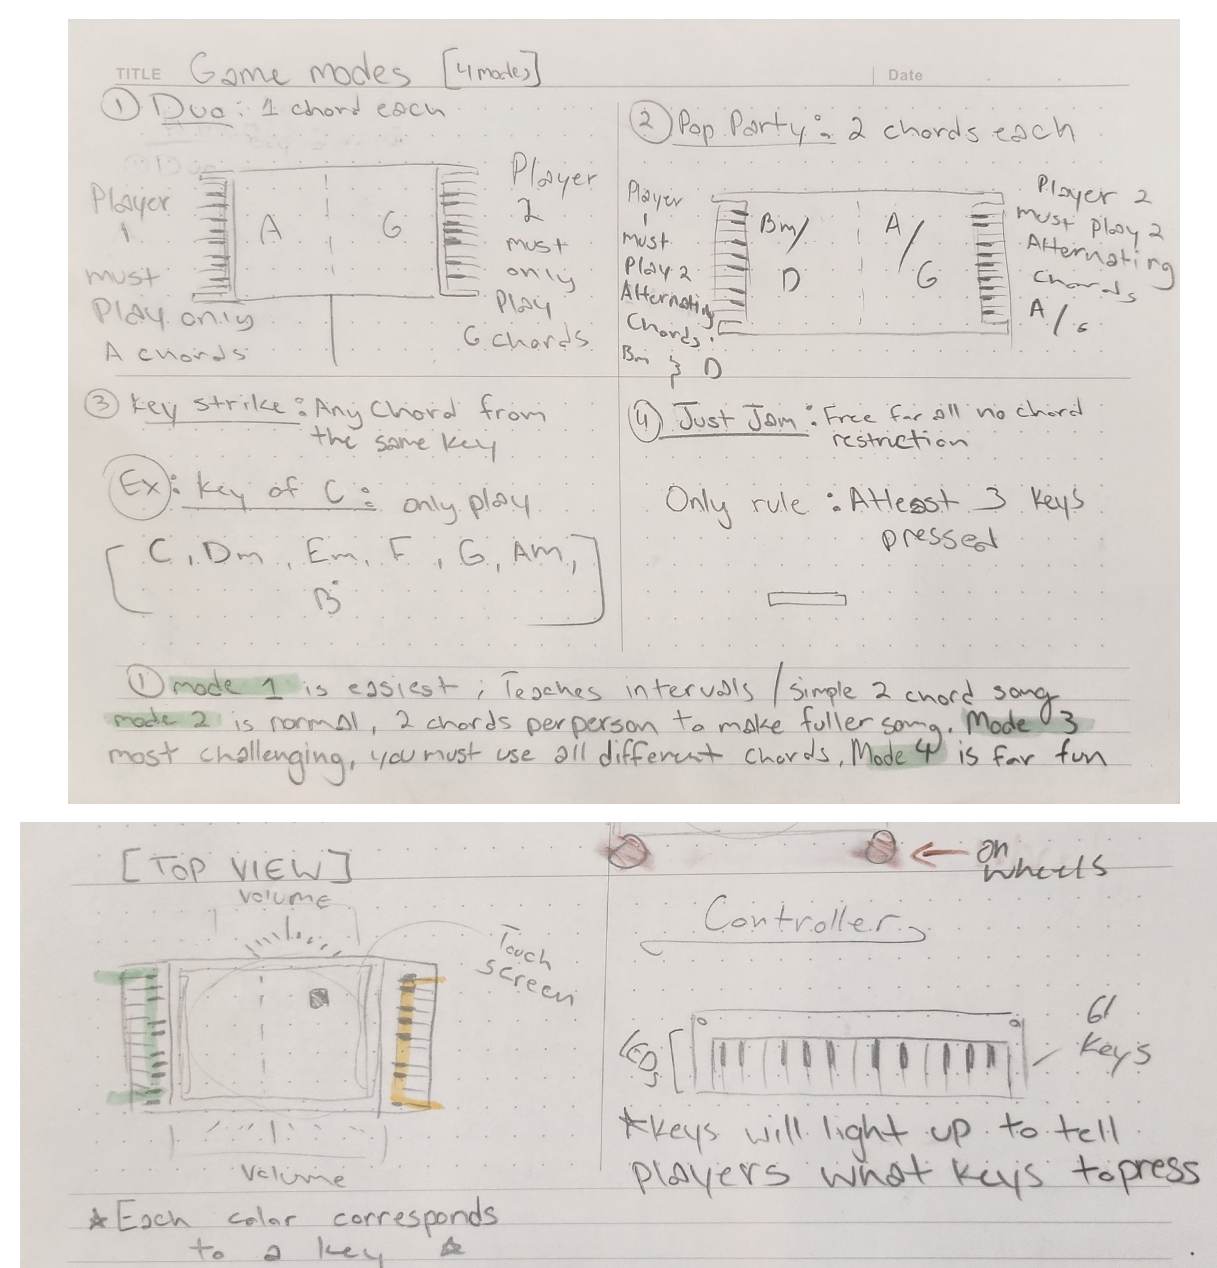 TITLE Game modes [4 modes]
Date
① Duo: 1 chord each
Player
1
must
Play only
A chords
A
G
Player
2
must
only
Play
G chords
② Pop Party: 2 chords each
Player
1
must
Play 2
Alternating
Chords:
Bm } D
Bm/
D
A/
G
Player 2
must Play 2
Alternating
Chords
A/G
③ Key strike: Any Chord from
the same key
Ex: Key of C: only play
[C, Dm, Em, F, G, Am,
B°]
④ Just Jam: Free for all no chord
restriction
Only rule: Atleast 3 keys
pressed
① mode 1 is easiest, Teaches intervals / simple 2 chord song
mode 2 is normal, 2 chords per person to make fuller song. Mode 3
most challenging, you must use all different chords. Mode 4 is for fun
[TOP VIEW]
Volume
Touch
screen
Volume
★ Each color corresponds
to a key ★
← on
wheels
Controller
LEDs
61
Keys
★ Keys will light up to tell
players what keys to press